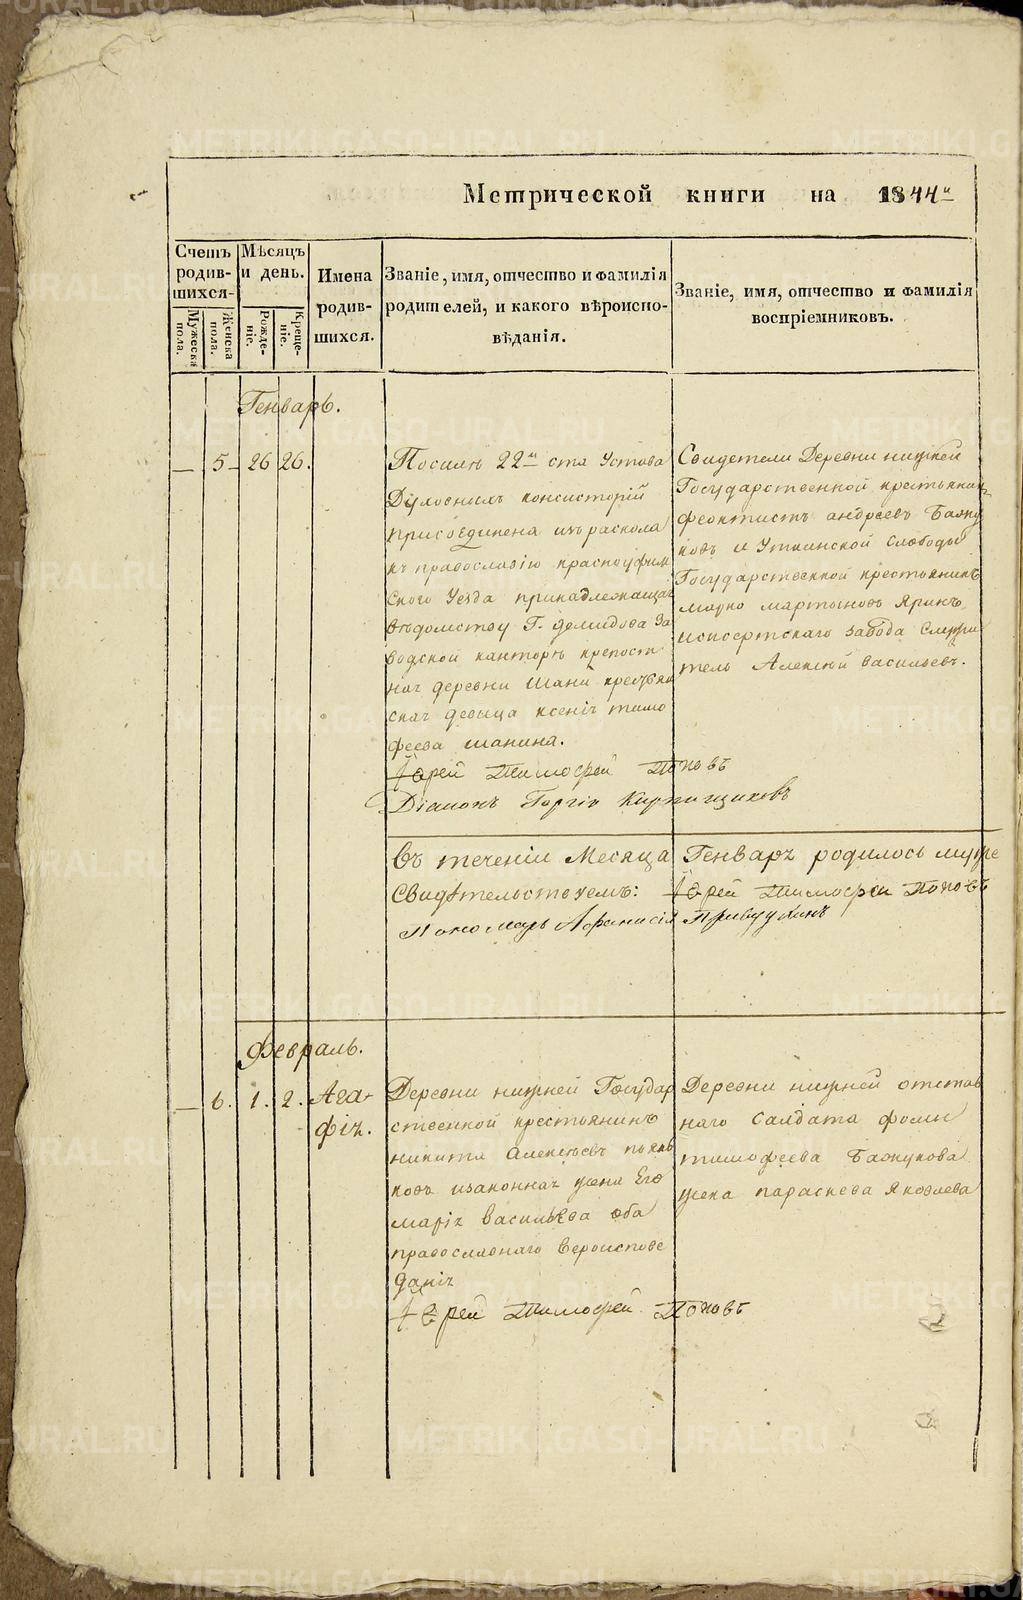 Метрической книги на 1844й
Счетъ родив-шихся.
Мужеска пола.
Женска пола.
Мѣсяцъ и день.
Рожде-ніе.
Креще-ніе.
Имена родив-шихся.
Званіе, имя, отчество и фамилія родителей, и какого вѣроиспо-вѣданія.
Званіе, имя, отчество и фамилія воспріемниковъ.
Генварь.
— 5 — 26 26.
По силѣ 22й стя Устава
Духовныхъ консисторій
присоединена изъ раскола
къ православію красноуфим
скаго Уезда принадлежащая
ведомству Г. Демидова За
водской канторѣ крепост
ная деревни Шани крестьян
ская девица ксенія тимо
феева шанина.
Іерей Тимофей Поповъ
Діаконъ Кирпищиковъ
Свидетели Деревни нижней
Государственной крестьянинъ
феоктистъ андреевъ
и Уткинской Слободы
Государственной крестьянинъ
марко мартыновъ Яринъ,
исисертскаго завода Смотри
тель Алексѣй васильевъ.
въ теченіи Месяца Генваря родилось муже
Свидѣтельствуемъ: Іерей Тимофей Поповъ
Пономарь Афанасій
Февраль.
— 6. 1. 2.
Ага-
фія.
Деревни нижней Государ
ственной крестьянинъ
никита Алексѣевъ
изаконная жена Его
марія васильева оба
православнаго вероиспове
данія
Іерей Тимофей Поповъ
Деревни нижней отстав
наго Салдата фомы
тимофеева
жена параскева Яковлева
METRIKI.GASO-URAL.RU